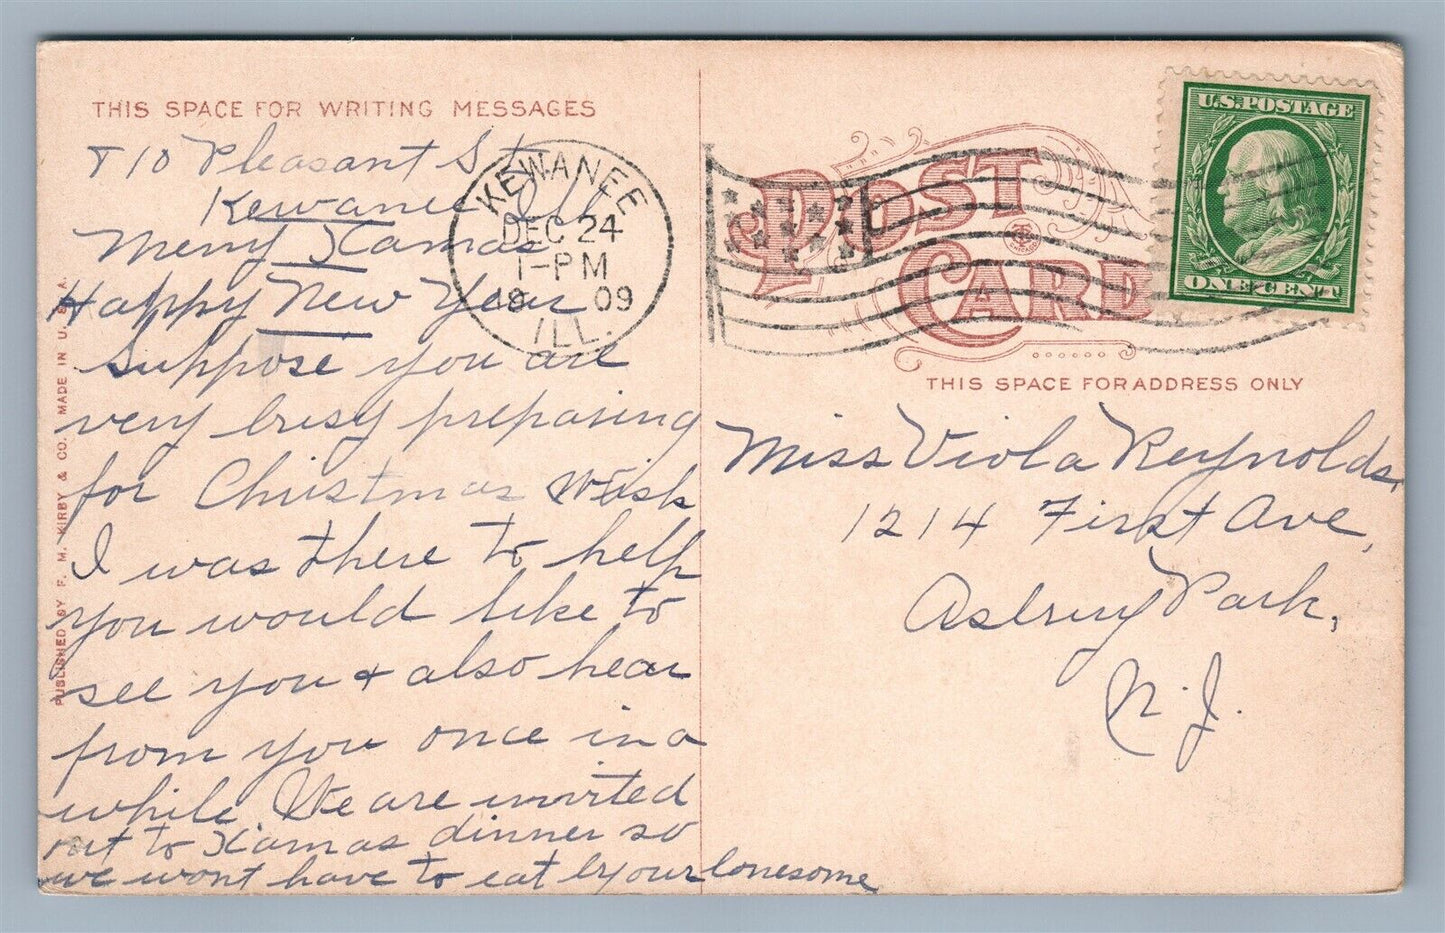 THIS SPACE FOR WRITING MESSAGES
710 Pleasant St
Kewanee Ill
Merry Xamas
Happy New Year
Suppose you are
very busy preparing
for Christmas Wish
I was there to help
you would like to
see you + also hear
from you once in a
while. We are invited
out to Xamas dinner so
we wont have to eat by our lonesome
PUBLISHED BY F. M. KIRBY & CO. MADE IN U. S. A.
KEWANEE
DEC 24
1-PM
1909
ILL.
POST
CARD
U.S. POSTAGE
ONE CENT
THIS SPACE FOR ADDRESS ONLY
Miss Viola Reynolds,
1214 First Ave,
Asbury Park,
N.J.